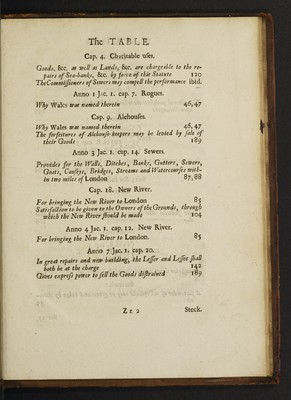 The TABLE
Cap. 4. Charitable uses.
Goods, &c. as well as Lands, &c. are chargeable to the re-
pairs of Sea-banks, &c. by force of this Statute 120
The Commissioners of Sewers may compell the performance ibid.
Anno 1 Jac. 1. cap. 7. Rogues.
Why Wales was named therein 46,47
Cap. 9. Alehouses.
Why Wales was named therein 46, 47
The forfeitures of Alehouse-keepers may be levied by sale of
their Goods 189
Anno 3 Jac. 1. cap. 14. Sewers.
Provides for the Walls, Ditches, Banks, Gutters, Sewers,
Goats, Causeys, Bridges, Streams and Watercourses with-
in two miles of London 87,88
Cap. 18. New River.
For bringing the New River to London 85
Satisfaction to be given to the Owners of the Grounds, through
which the New River should be made 104
Anno 4 Jac. 1. cap. 12. New River.
For bringing the New River to London. 85
Anno 7 Jac. 1. cap. 20.
In great repairs and new building, the Lessor and Lessee shall
both be at the charge 142
Gives express power to sell the Goods distrained 189
Zz 2 Stock.